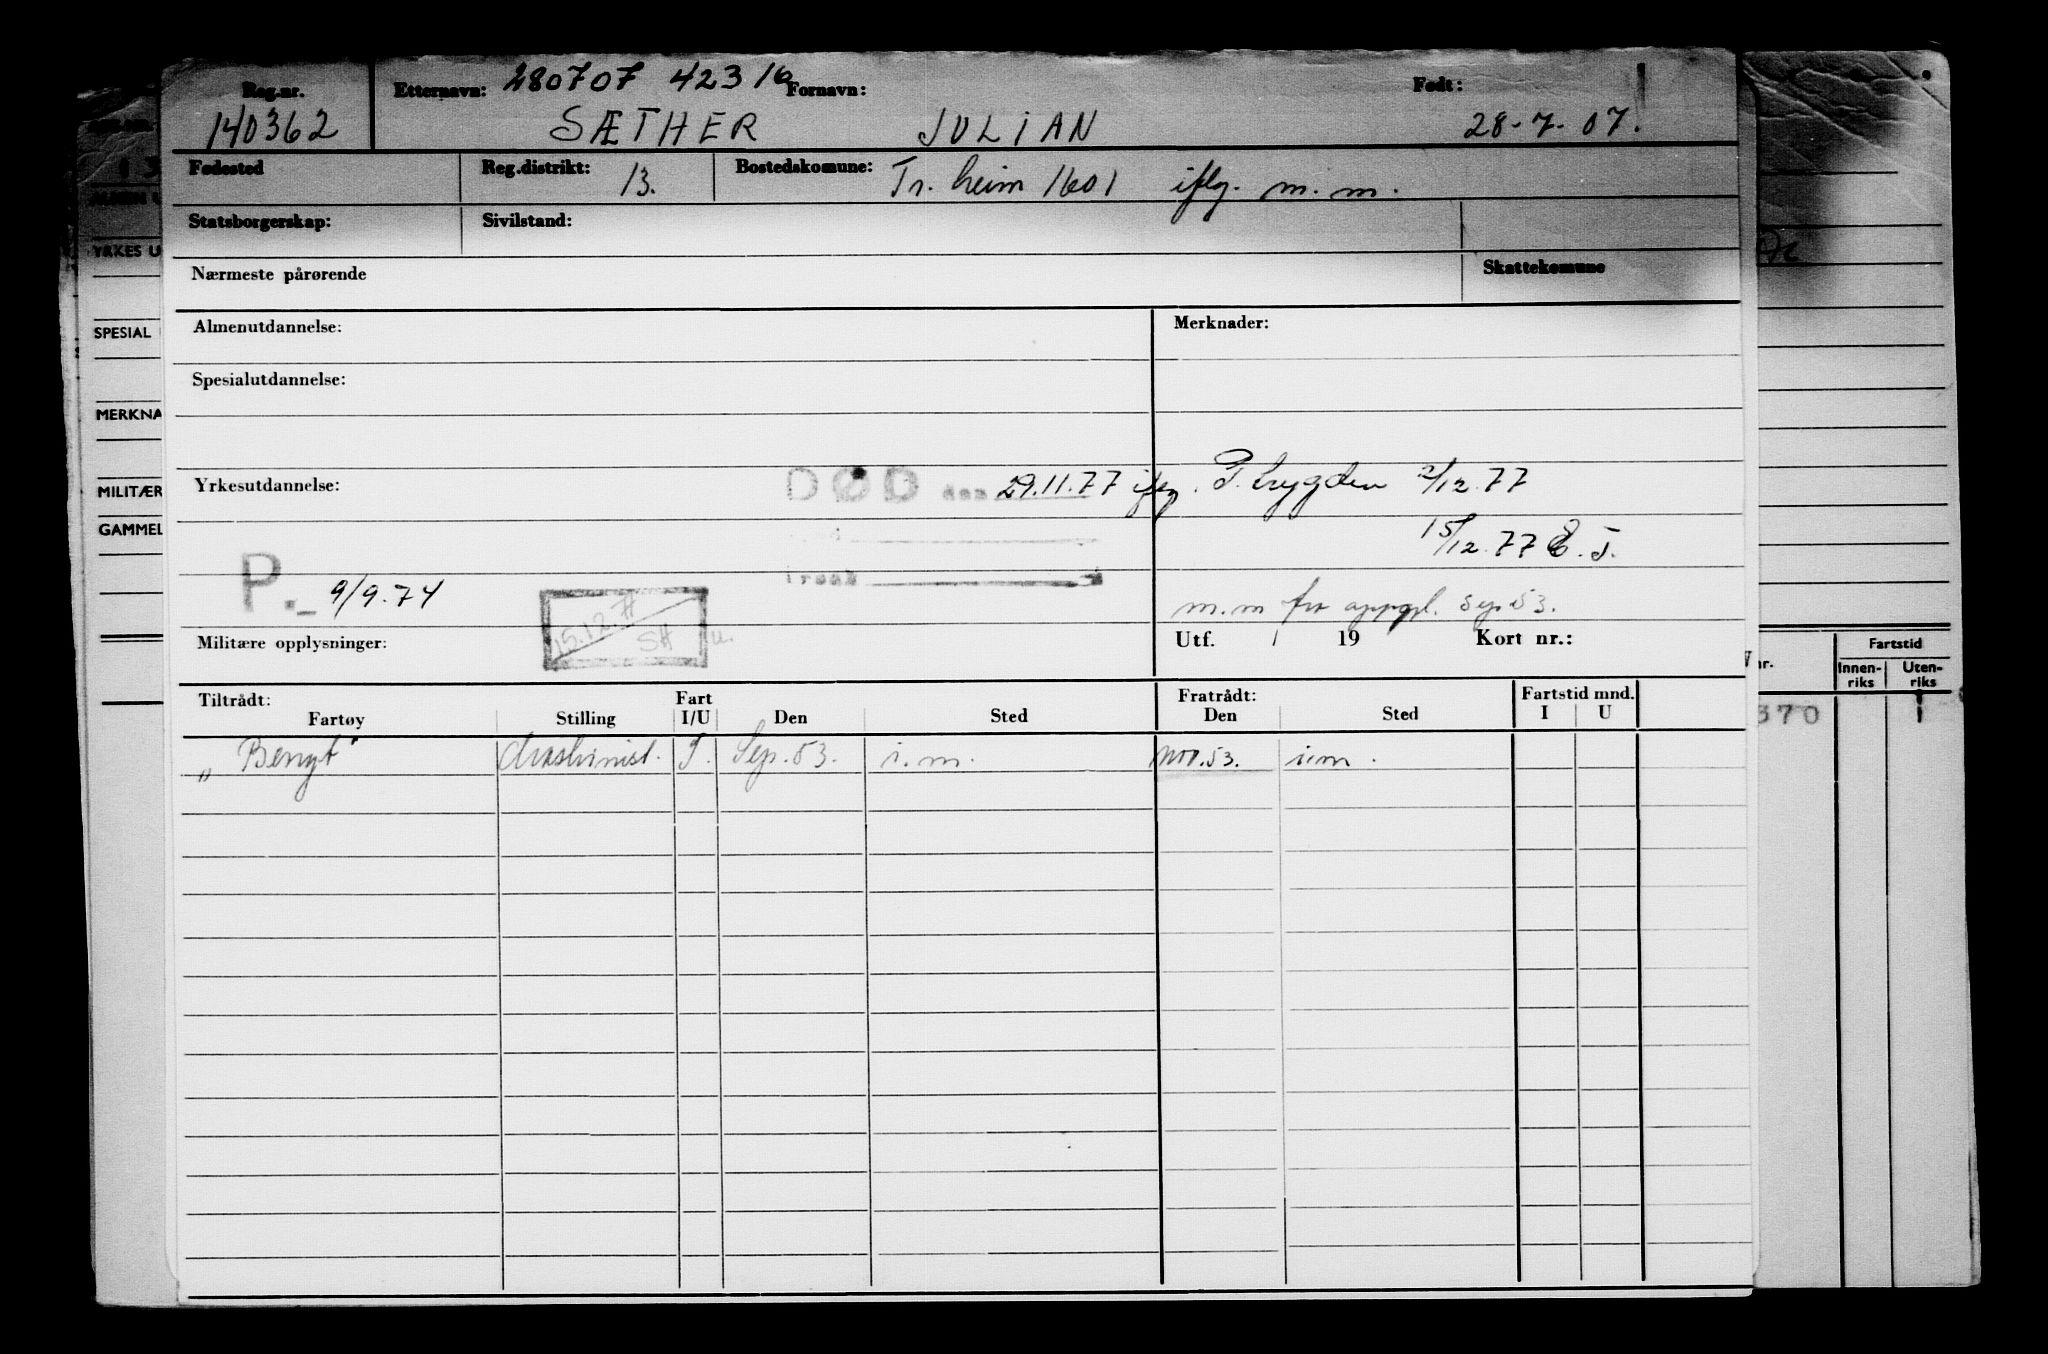 Reg.nr. Etternavn: 280707 42316 Fornavn: Født:
140362 SÆTHER JULIAN 28-7-07.
Fødested Reg.distrikt: 13. Bostedskomune: Tr.heim 1601 iflg. m.m.
Statsborgerskap: Sivilstand:
Nærmeste pårørende Skattekomune
Almenutdannelse: Merknader:
Spesialutdannelse:
Yrkesutdannelse: DØD den 29.11.77 iflg. P.trygden 2/12.77
15/12.77 E.T.
P.- 9/9.74
m.m fra oppgl. Sep 53.
15.12.77
SH
Militære opplysninger: Utf. / 19 Kort nr.:
Tiltrådt: Fart Fratrådt: Fartstid mnd.
Fartøy Stilling I/U Den Sted Den Sted I U
"Bengt" Maskinist. Sep. 53. i.m. Nov. 53. i.m.
YRKES U
SPESIAL
MERKNA
MILITÆR
GAMMEL
nr. Fartstid
Innen-riks Uten-riks
370